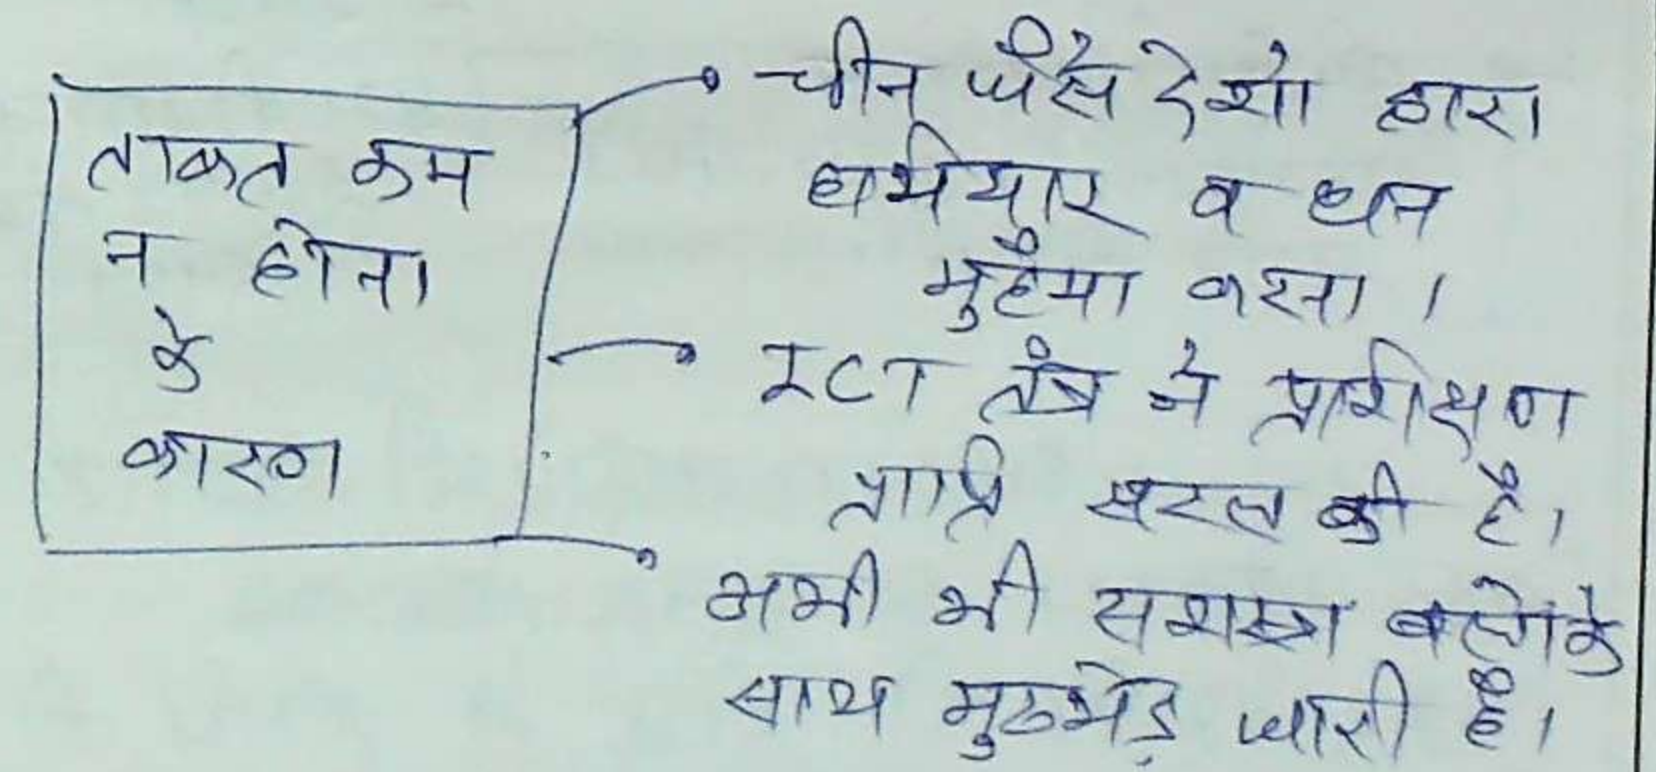 ताकत कम
न होना
के
कारण
चीन जैसे देशों द्वारा
हथियार व धन
मुहैया करना ।
ICT तंत्र ने प्रशिक्षण
प्राप्ति सरल की है।
अभी भी सशस्त्र बलों के
साथ मुठभेड़ जारी है।